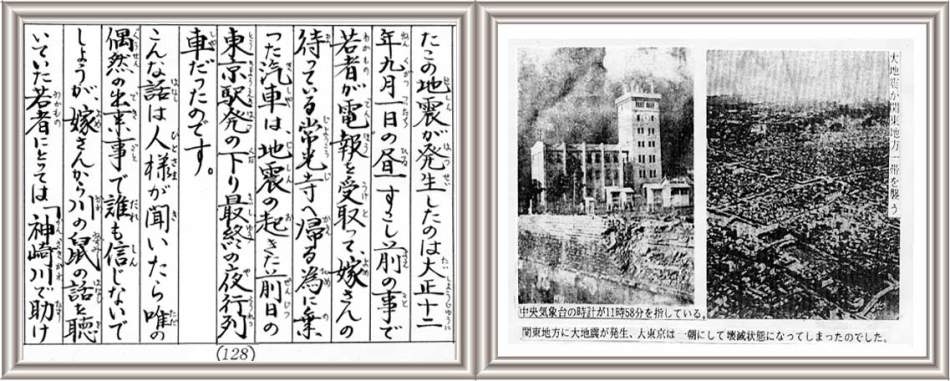 たこの地震が発生したのは大正十二
年九月一日の昼すこし前の事で
若者が電報を受取って、嫁さんの
待っている常光寺へ帰る為に乗
った汽車は、地震の起きた前日の
東京駅発の下り最終の夜行列
車だったのです。
こんな話は人様が聞いたら唯の
偶然の出来事で誰も信じないで
しょうが、嫁さんから川の鼠の話を聴
いていた若者にとっては「神崎川で助け
(128)
大地震が関東地方一帯を襲う
中央気象台の時計が11時58分を指している。
関東地方に大地震が発生、大東京は一朝にして壊滅状態になってしまったのでした。